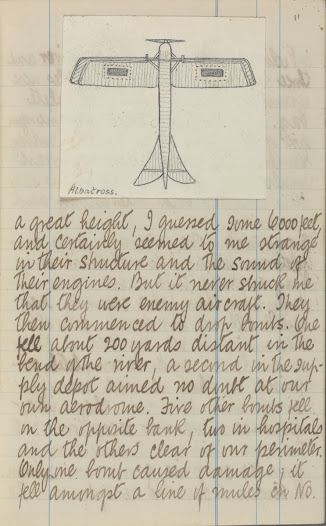 11
Albatross.
a great height, I guessed some 6000 feet,
and certainly seemed to me strange
in their structure and the sound of
their engines. But it never struck me
that they were enemy aircraft. They
then commenced to drop bombs. One
fell about 200 yards distant in the
bend of the river, a second in the sup-
ply depot aimed no doubt at our
own aerodrome. Five other bombs fell
on the opposite bank, two in hospitals
and the others clear of our perimeter.
Only one bomb caused damage; it
fell amongst a line of mules in No.